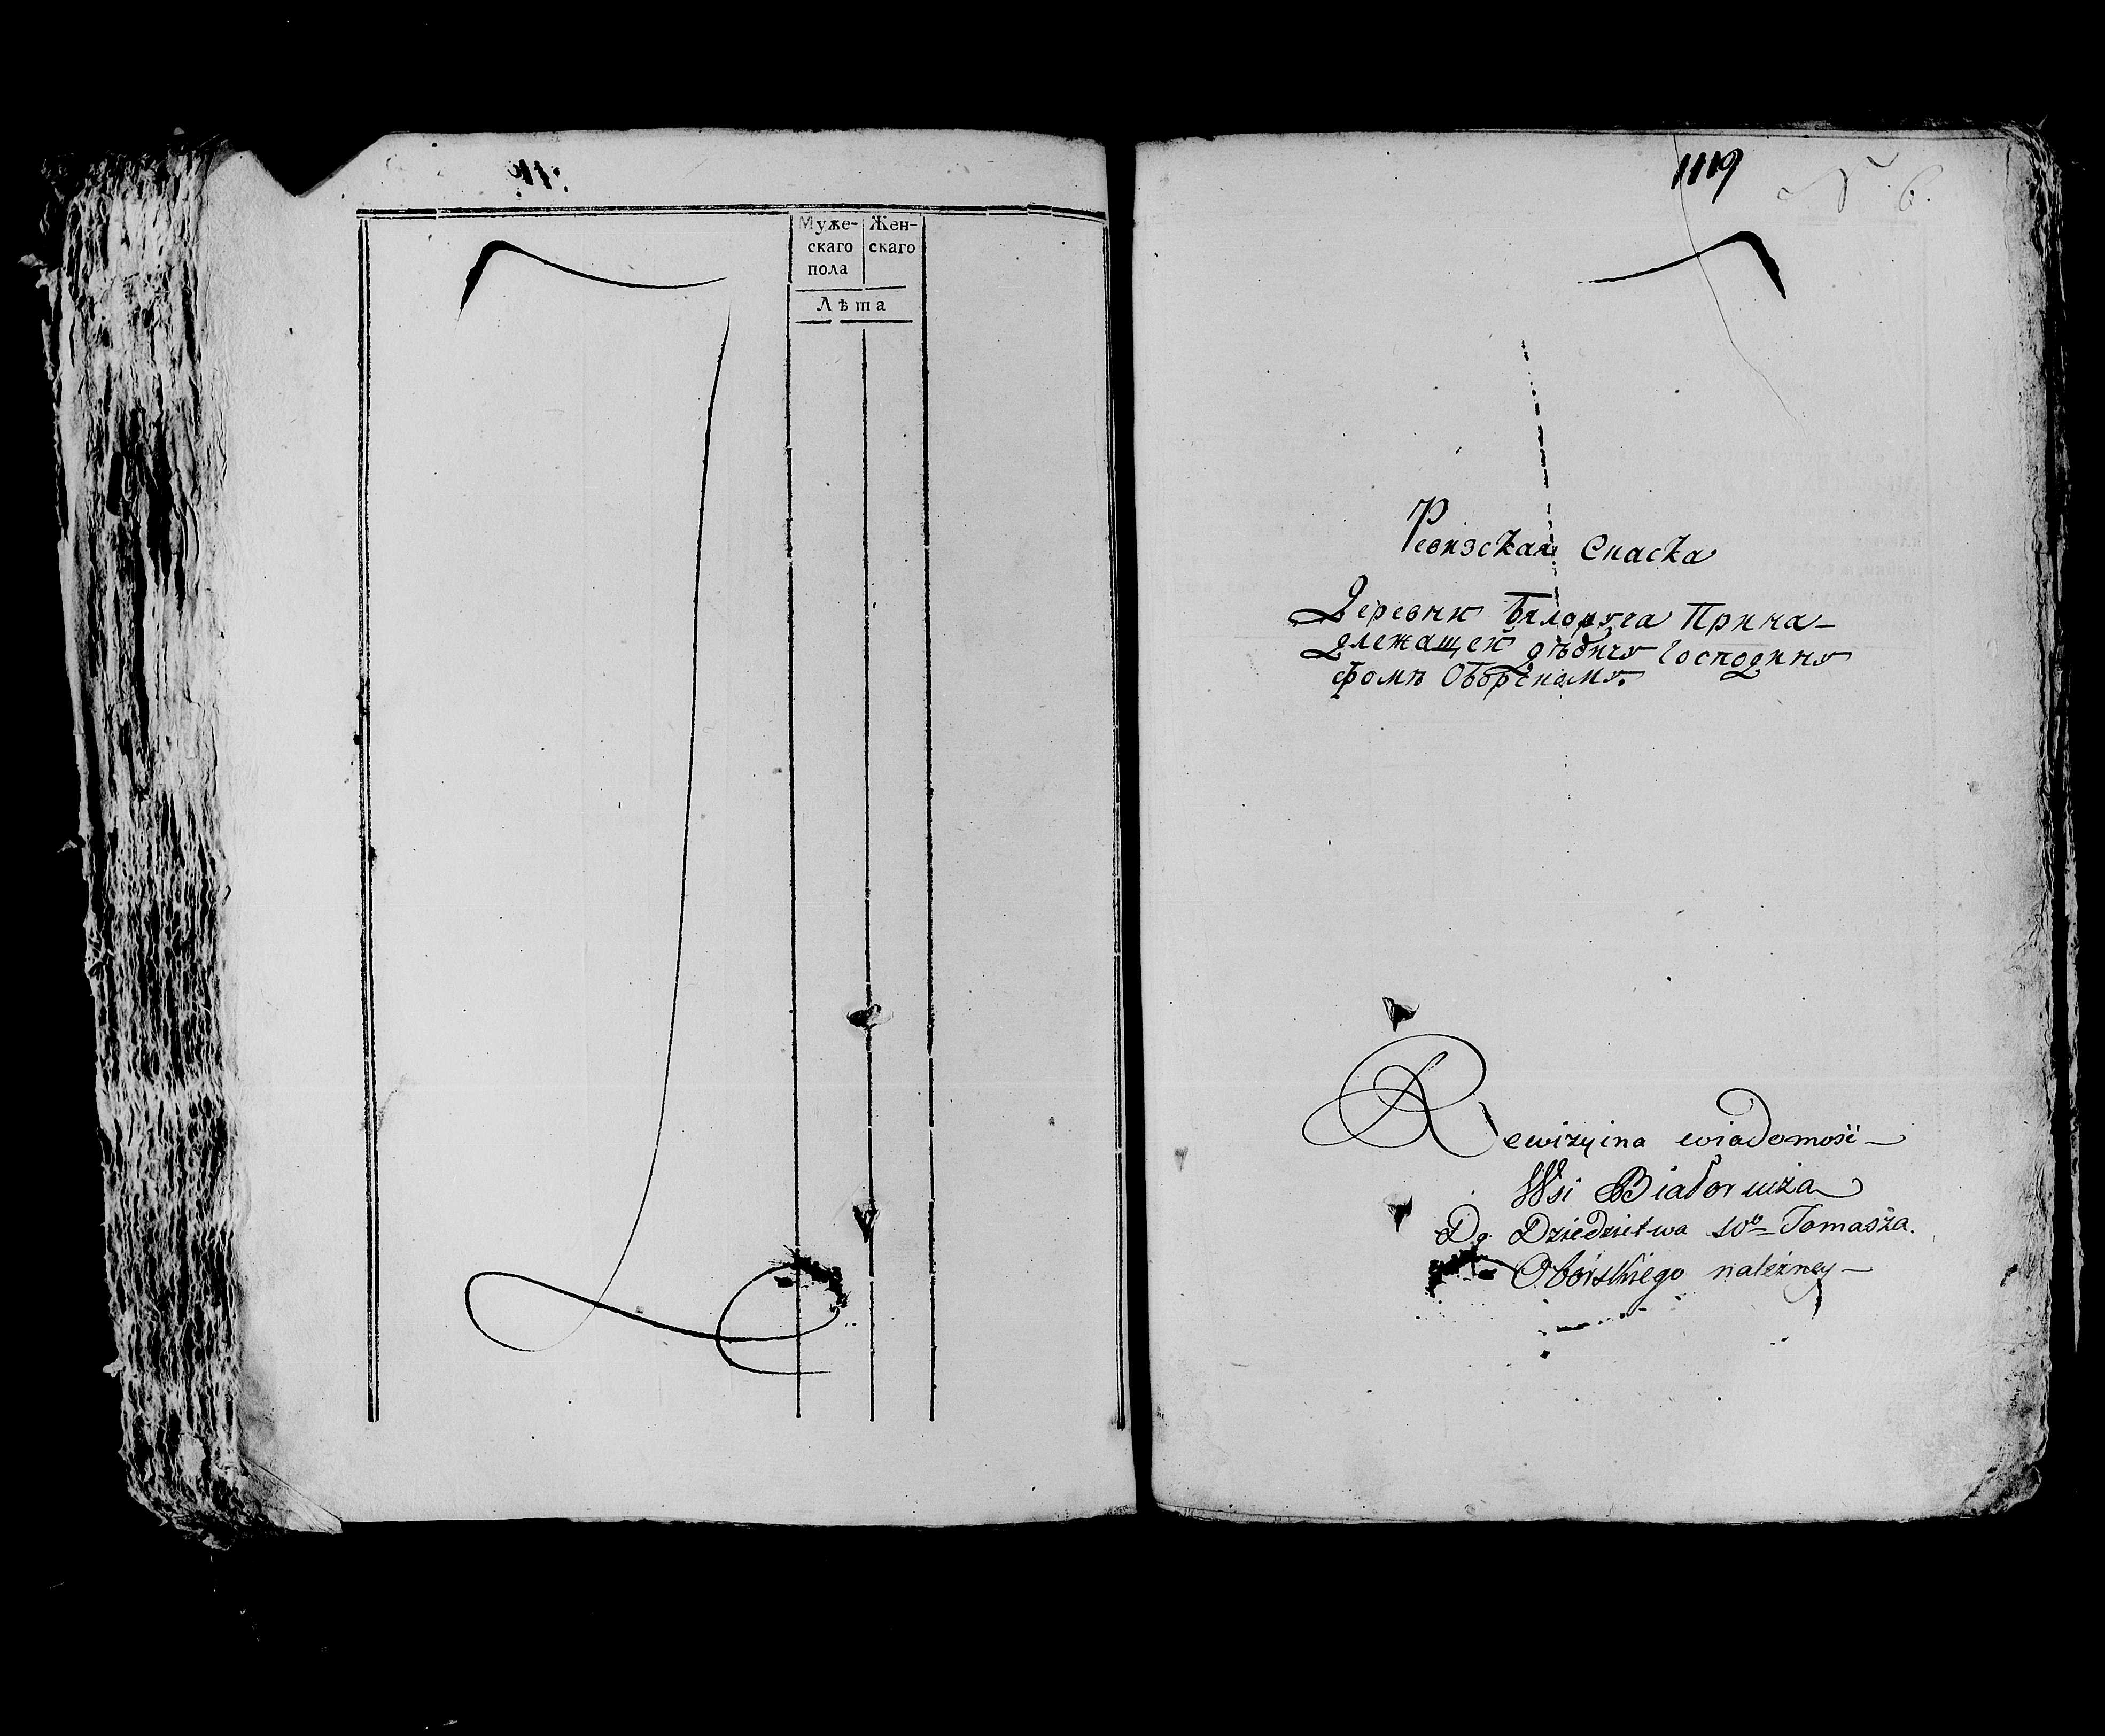 Муже-
скаго
пола
Жен-
скаго
Лѣта
1119
N 6.
Ревизская Сказка
Деревни Бѣлоруса Прина-
длежащей дѣдичу Господину
Фомѣ Оборскому.
Rewizyina wiadomość
Wsi
Do Dziedzictwa Wo Tomasza.
Oborskiego należney